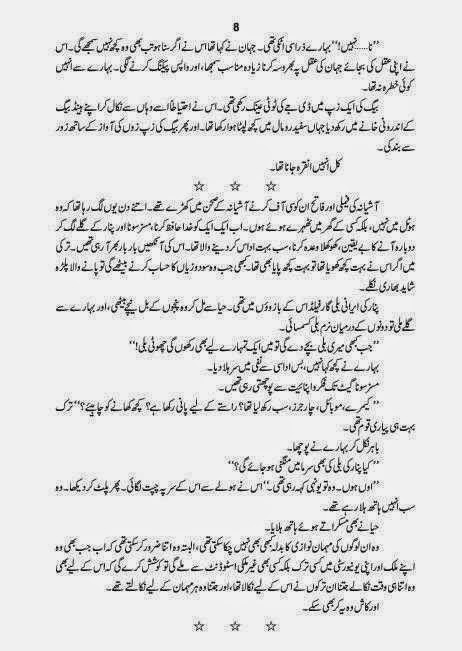 8
”نا.....نہیں!“ بہارے ذرا سی اٹکی تھی۔ جہان نے کہا تھا اس نے اگر سنا ہو تب بھی وہ کچھ نہیں سمجھے گی۔ اس
نے اپنی عقل کی بجائے جہان کی عقل پہ بھروسہ کرنا زیادہ مناسب سمجھا، اور واپس پیکنگ کرنے لگی۔ بہارے سے انہیں
کوئی خطرہ نہ تھا۔
بیگ کی ایک زپ میں ڈی جے کی ٹوٹی عینک رکھی تھی۔ اس نے احتیاطاً اسے وہاں سے نکال کر اپنے ہینڈ بیگ
کے اندرونی خانے میں رکھ دیا جہاں سفید رومال میں کچھ لپٹا ہوا رکھا تھا۔ اور پھر بیگ کی زپ زوں کی آواز کے ساتھ زور
سے بند کی۔
کل انہیں انقرہ جانا تھا۔
☆ ☆ ☆
آشیانہ کی فیملی اور فاتح ان کو سی آف کرنے آشیانہ کے صحن میں کھڑے تھے۔ اتنے دن یوں لگ رہا تھا کہ وہ
ہوٹل میں نہیں، بلکہ کسی کے گھر میں ٹھہرے ہوئے ہوں۔ اب ایک ایک کو خدا حافظ کرنا، مسز سونا اور پنار کے گلے لگ کر
دوبارہ آنے کا بے یقین، کھوکھلا وعدہ کرنا، سب بہت اداس کر دینے والا تھا۔ اس کی آنکھیں بار بار بھر آ رہی تھیں۔ ترکی
میں اگر اس نے بہت کچھ کھویا تھا تو بہت کچھ پایا بھی تھا۔ کبھی جب وہ سود و زیاں کا حساب کرنے بیٹھے گی تو پانے والا پلڑہ
شاید بھاری نکلے۔
پنار کی ایرانی بلی گارفیلڈ اس کے بازوؤں میں تھی۔ حیا سے مل کر وہ پنجوں کے بل نیچے بیٹھی، اور بہارے سے
گلے ملی تو دونوں کے درمیان نرم بلی کسمسائی۔
”جب کبھی میری بلی بچے دے گی تو میں ایک تمہارے لیے بھی رکھوں گی چھوٹی بلی!“
بہارے نے کچھ کہا نہیں، بس اداسی سے نفی میں سر ہلا دیا۔
مسز سونا گیٹ تک فکر و اپنائیت سے پوچھتی رہی تھیں۔
”کیمرے، موبائل، چارجرز، سب رکھ لیا تھا؟ راستے کے لیے پانی رکھا ہے؟ کچھ کھانے کو چاہیئے؟“ ترک
بہت ہی پیاری قوم تھی۔
باہر نکل کر بہارے نے پوچھا۔
”کیا پنار کی بلی کی بھی سرما میں منگنی ہو جائے گی؟“
”اوں ہوں۔ وہ تو یونہی کہہ رہی تھی۔“ اس نے ہولے سے اس کے سر پہ چپت لگائی۔ پھر پلٹ کر دیکھا۔ وہ
سب انہیں ہاتھ ہلا رہے تھے۔
حیا نے بھی مسکراتے ہوئے ہاتھ ہلایا۔
وہ ان لوگوں کی مہمان نوازی کا بدلہ کبھی بھی نہیں چکا سکتی تھی، البتہ وہ اتنا ضرور کر سکتی تھی کہ اب جب بھی وہ
اپنے ملک اور اپنی یونیورسٹی میں کسی ترک بلکہ کسی بھی غیر ملکی اسٹوڈنٹ سے ملے گی تو کوشش کرے گی کہ اس کے لیے بھی
وہ اتنا ہی وقت نکالے جتنا ان ترکوں نے اس کے لیے نکالا تھا، اور جتنا وہ ہر مہمان کے لیے نکالتے تھے۔
اور کاش وہ یہ کر بھی سکے۔
☆ ☆ ☆